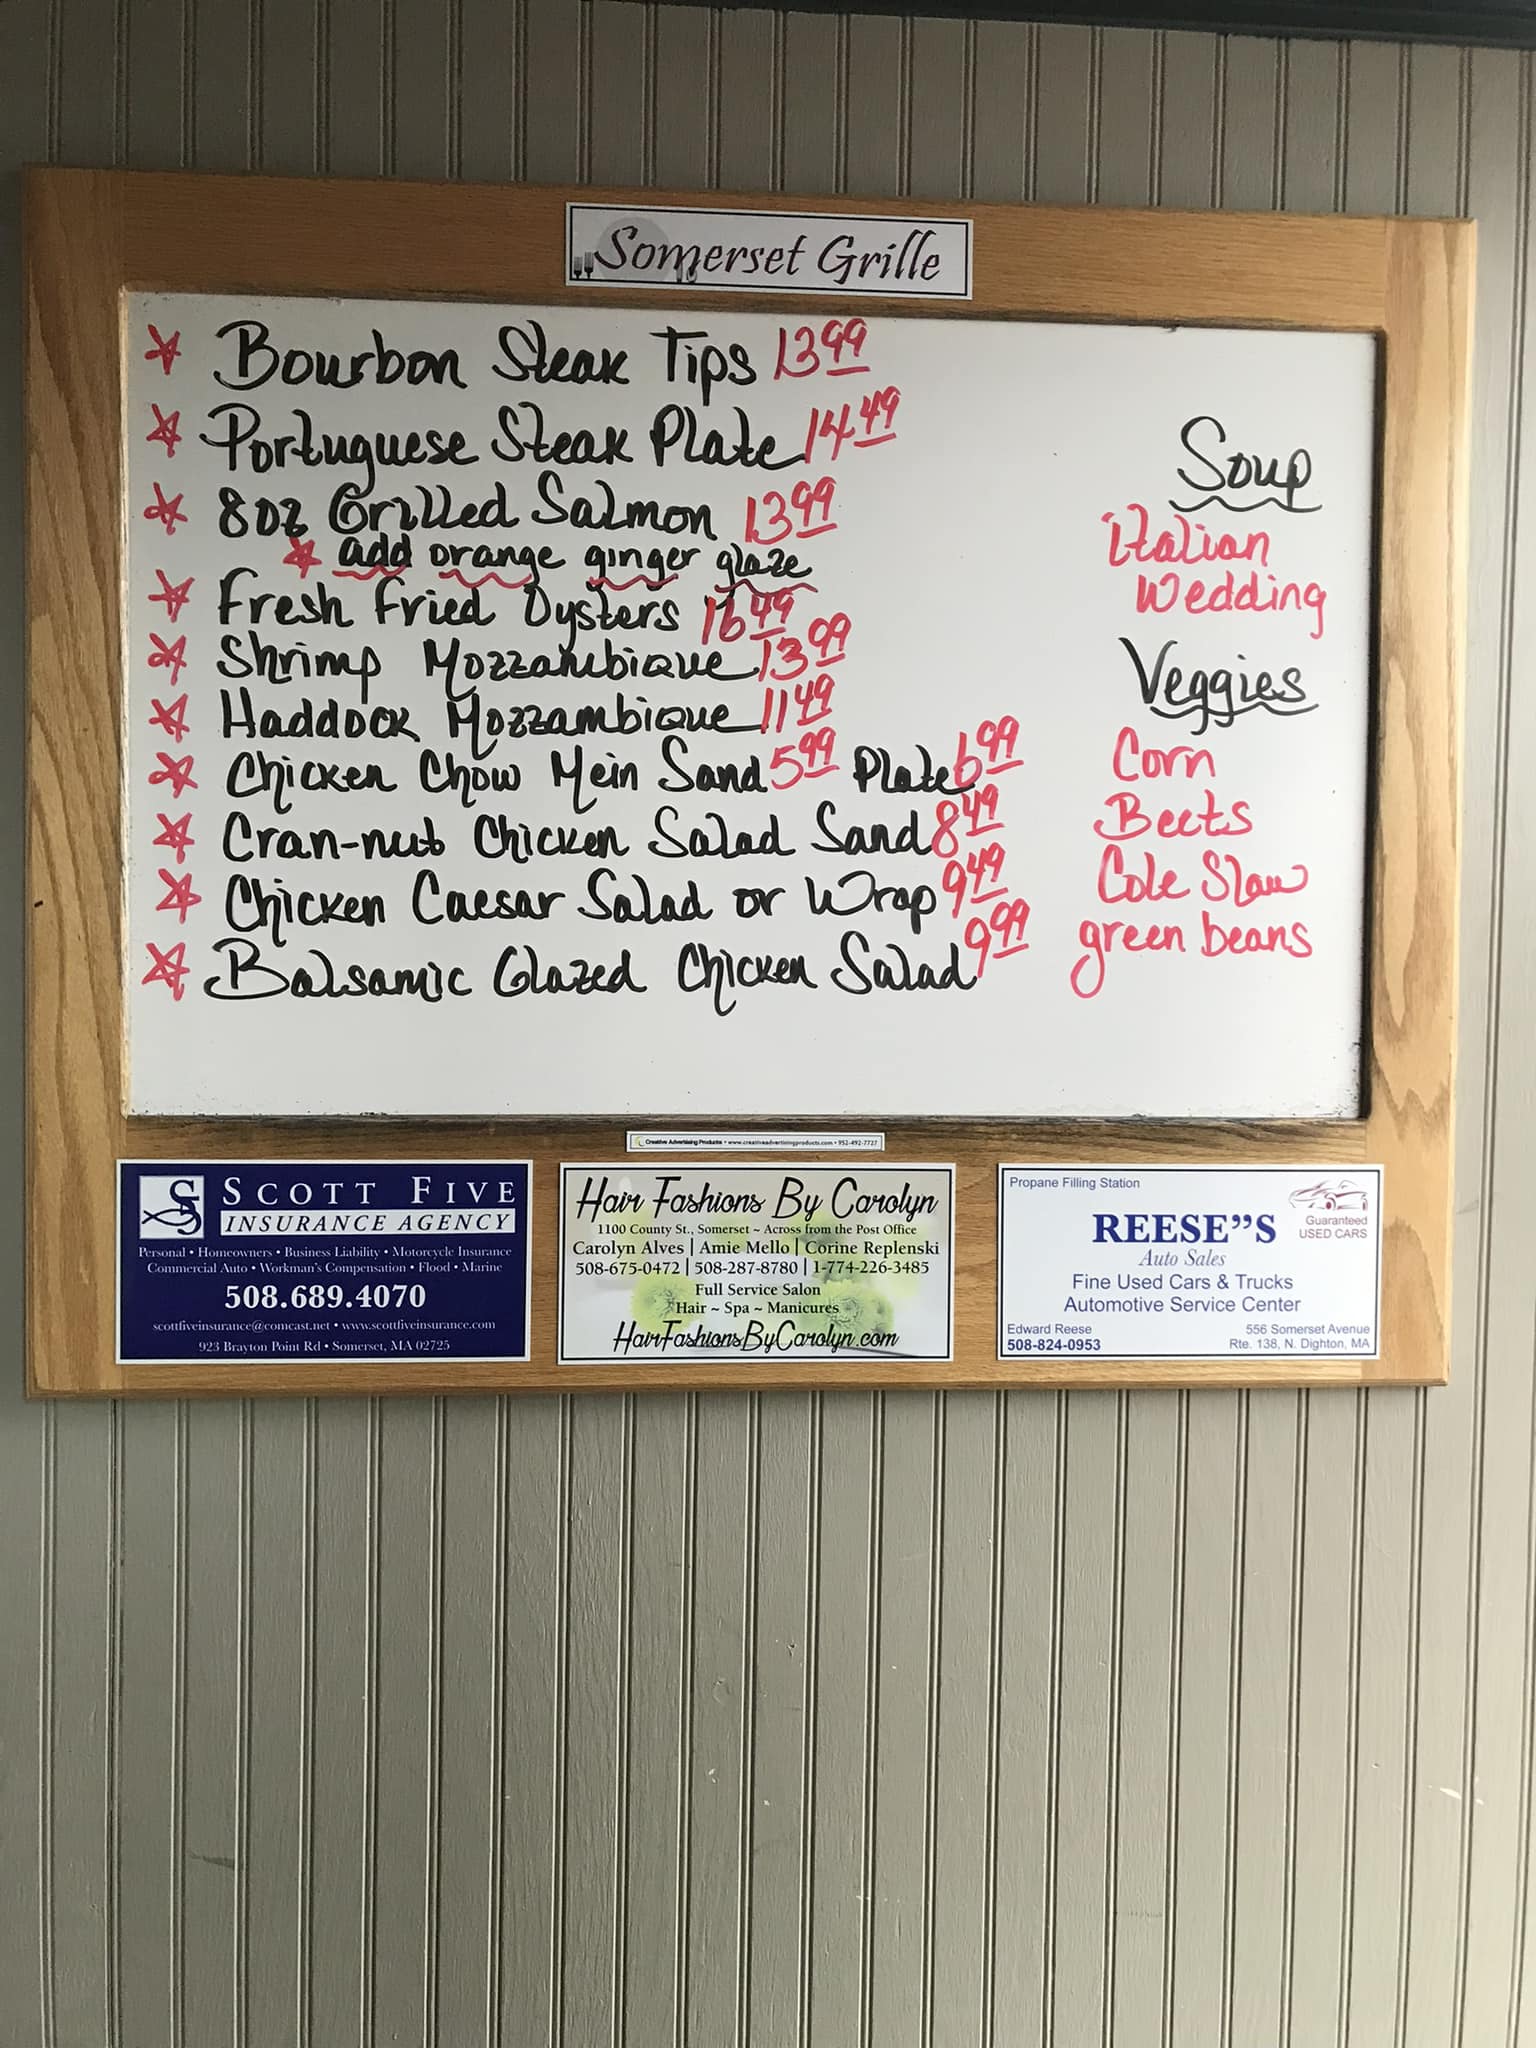 Somerset Grille
Bourbon Steak Tips 13.99
Portuguese Steak Plate 14.49
8oz Grilled Salmon 13.99
add orange ginger glaze
Fresh Fried Oysters 16.49
Shrimp Mozzambique 13.99
Haddock Mozzambique 11.49
Chicken Chow Mein Sand 5.99 Plate 6.99
Cran-nut Chicken Salad Sand 8.49
Chicken Caesar Salad or Wrap 9.49
Balsamic Glazed Chicken Salad 9.99
Soup
Italian
Wedding
Veggies
Corn
Beets
Cole Slaw
green beans
Creative Advertising Products • www.creativeadvertisingproducts.com • 952-492-7727
SCOTT FIVE
INSURANCE AGENCY
Personal • Homeowners • Business Liability • Motorcycle Insurance
Commercial Auto • Workman's Compensation • Flood • Marine
508.689.4070
scottfiveinsurance@comcast.net • www.scottfiveinsurance.com
923 Brayton Point Rd • Somerset, MA 02725
Hair Fashions By Carolyn
1100 County St., Somerset ~ Across from the Post Office
Carolyn Alves | Amie Mello | Corine Replenski
508-675-0472 | 508-287-8780 | 1-774-226-3485
Full Service Salon
Hair ~ Spa ~ Manicures
HairFashionsByCarolyn.com
Propane Filling Station
Guaranteed
USED CARS
REESE”S
Auto Sales
Fine Used Cars & Trucks
Automotive Service Center
Edward Reese
508-824-0953
556 Somerset Avenue
Rte. 138, N. Dighton, MA